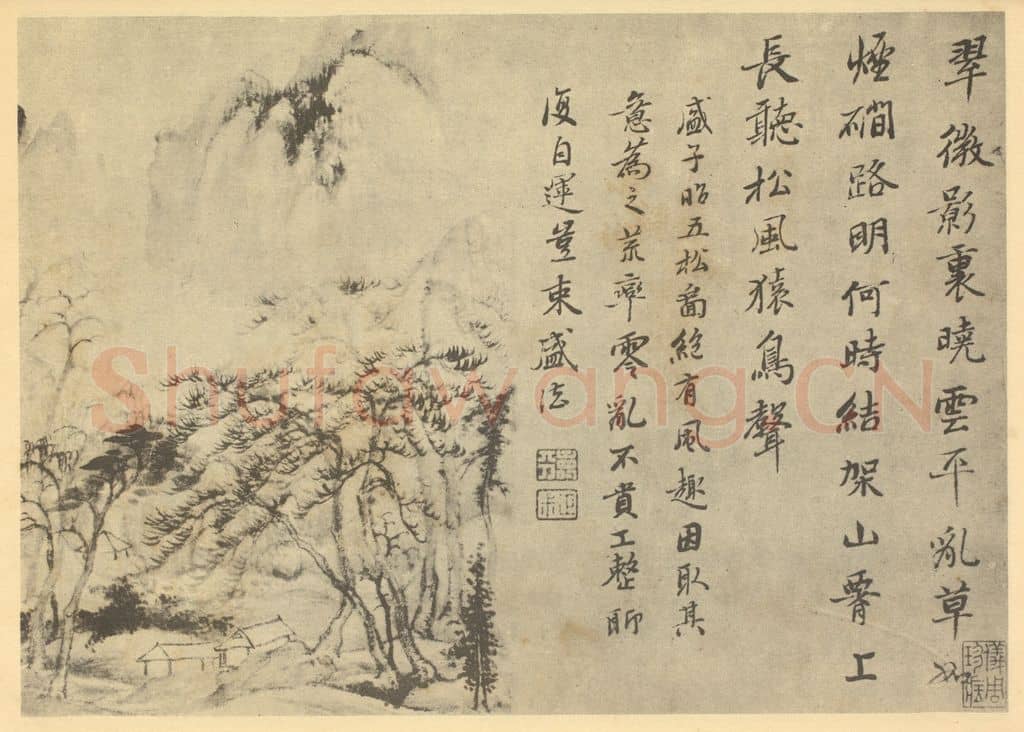 翠微影裏曉雲平亂草如
煙磵路明何時結架山脊上
長聽松風猿鳥聲
盛子昭五松啚絶有風趣因取其
意為之荒率零亂不貴工整聊
復自運豈束盛法
Shufawang.CN